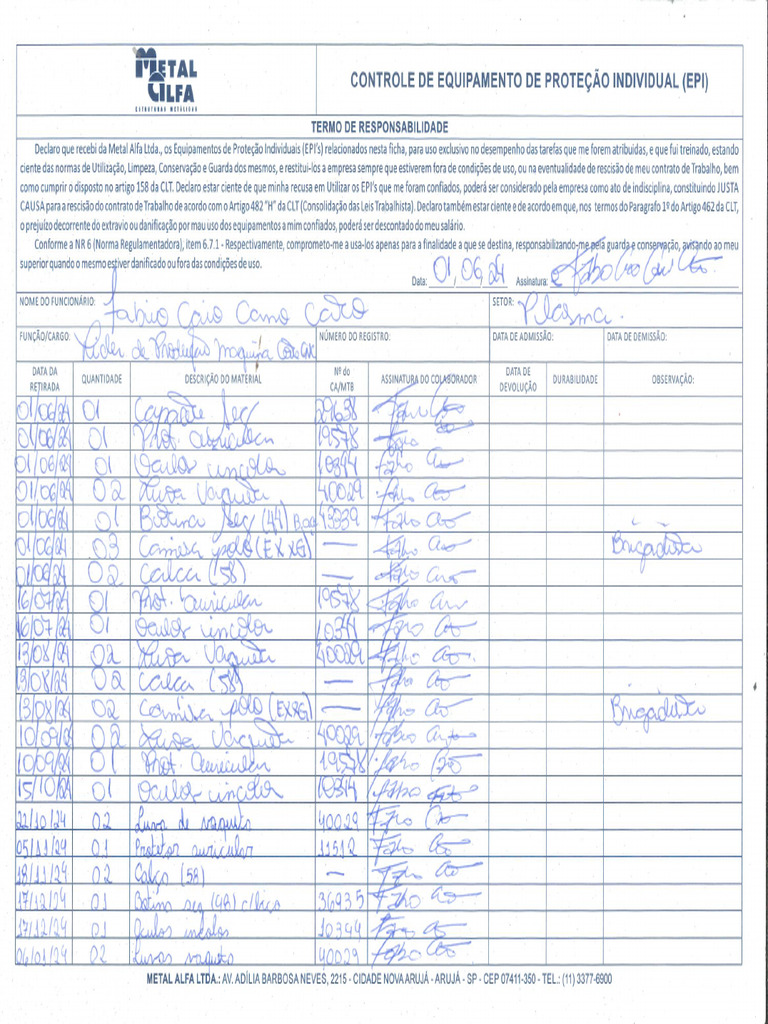 METAL ALFA
ESTRUTURAS METÁLICAS
CONTROLE DE EQUIPAMENTO DE PROTEÇÃO INDIVIDUAL (EPI)
TERMO DE RESPONSABILIDADE
Declaro que recebi da Metal Alfa Ltda., os Equipamentos de Proteção Individuais (EPI's) relacionados nesta ficha, para uso exclusivo no desempenho das tarefas que me forem atribuidas, e que fui treinado, estando
ciente das normas de Utilização, Limpeza, Conservação e Guarda dos mesmos, e restitui-los a empresa sempre que estiverem fora de condições de uso, ou na eventualidade de rescisão de meu contrato de Trabalho, bem
como cumprir o disposto no artigo 158 da CLT. Declaro estar ciente de que minha recusa em Utilizar os EPI's que me foram confiados, poderá ser considerado pela empresa como ato de indisciplina, constituindo JUSTA
CAUSA para a rescisão do contrato de Trabalho de acordo com o Artigo 482 "H" da CLT (Consolidação das Leis Trabalhista). Declaro também estar ciente e de acordo em que, nos termos do Paragrafo 1º do Artigo 462 da CLT,
o prejuízo decorrente do extravio ou danificação por mau uso dos equipamentos a mim confiados, poderá ser descontado do meu salário.
Conforme a NR 6 (Norma Regulamentadora), item 6.7.1 - Respectivamente, comprometo-me a usa-los apenas para a finalidade a que se destina, responsabilizando-me pela guarda e conservação, avisando ao meu
superior quando o mesmo estiver danificado ou fora das condições de uso.
Data: 01/06/24 Assinatura:
NOME DO FUNCIONÁRIO: Fabio Caio Cano Cato SETOR: Plasma.
FUNÇÃO/CARGO: Lider de Produção maquina NÚMERO DO REGISTRO: DATA DE ADMISSÃO: DATA DE DEMISSÃO:
DATA DA RETIRADA QUANTIDADE DESCRIÇÃO DO MATERIAL Nº do CA/MTB ASSINATURA DO COLABORADOR DATA DE DEVOLUÇÃO DURABILIDADE OBSERVAÇÃO:
01/06/24 01 Capacete Seg 29638
01/06/24 01 Prot. auricular 19578
01/06/24 01 Oculos incolor 10344
01/06/24 02 Luva Vaqueta 40029
01/06/24 01 Botina Seg (44) 43339
01/06/24 03 Camisa polo (EXXG) — Brigadista
01/06/24 02 Calca (58) —
16/07/24 01 Prot. auricular 19578
16/07/24 01 Oculos incolor 10344
13/08/24 02 Luva Vaqueta 40029
13/08/24 02 Calca (58) —
13/08/24 02 Camisa polo (EXXG) — Brigadista
10/09/24 02 Luva Vaqueta 40029
10/09/24 01 Prot. auricular 19578
15/10/24 01 Oculos incolor 10344
22/10/24 02 Luva de vaqueta 40029
05/11/24 01 Protetor auricular 11512
18/11/24 02 Calça (58) —
17/12/24 01 Botina seg (48) c/bico 36935
17/12/24 01 Oculos incolos 10344
06/01/24 02 Luvas vaqueta 40029
METAL ALFA LTDA.: AV. ADÍLIA BARBOSA NEVES, 2215 - CIDADE NOVA ARUJÁ - ARUJÁ - SP - CEP 07411-350 - TEL.: (11) 3377-6900